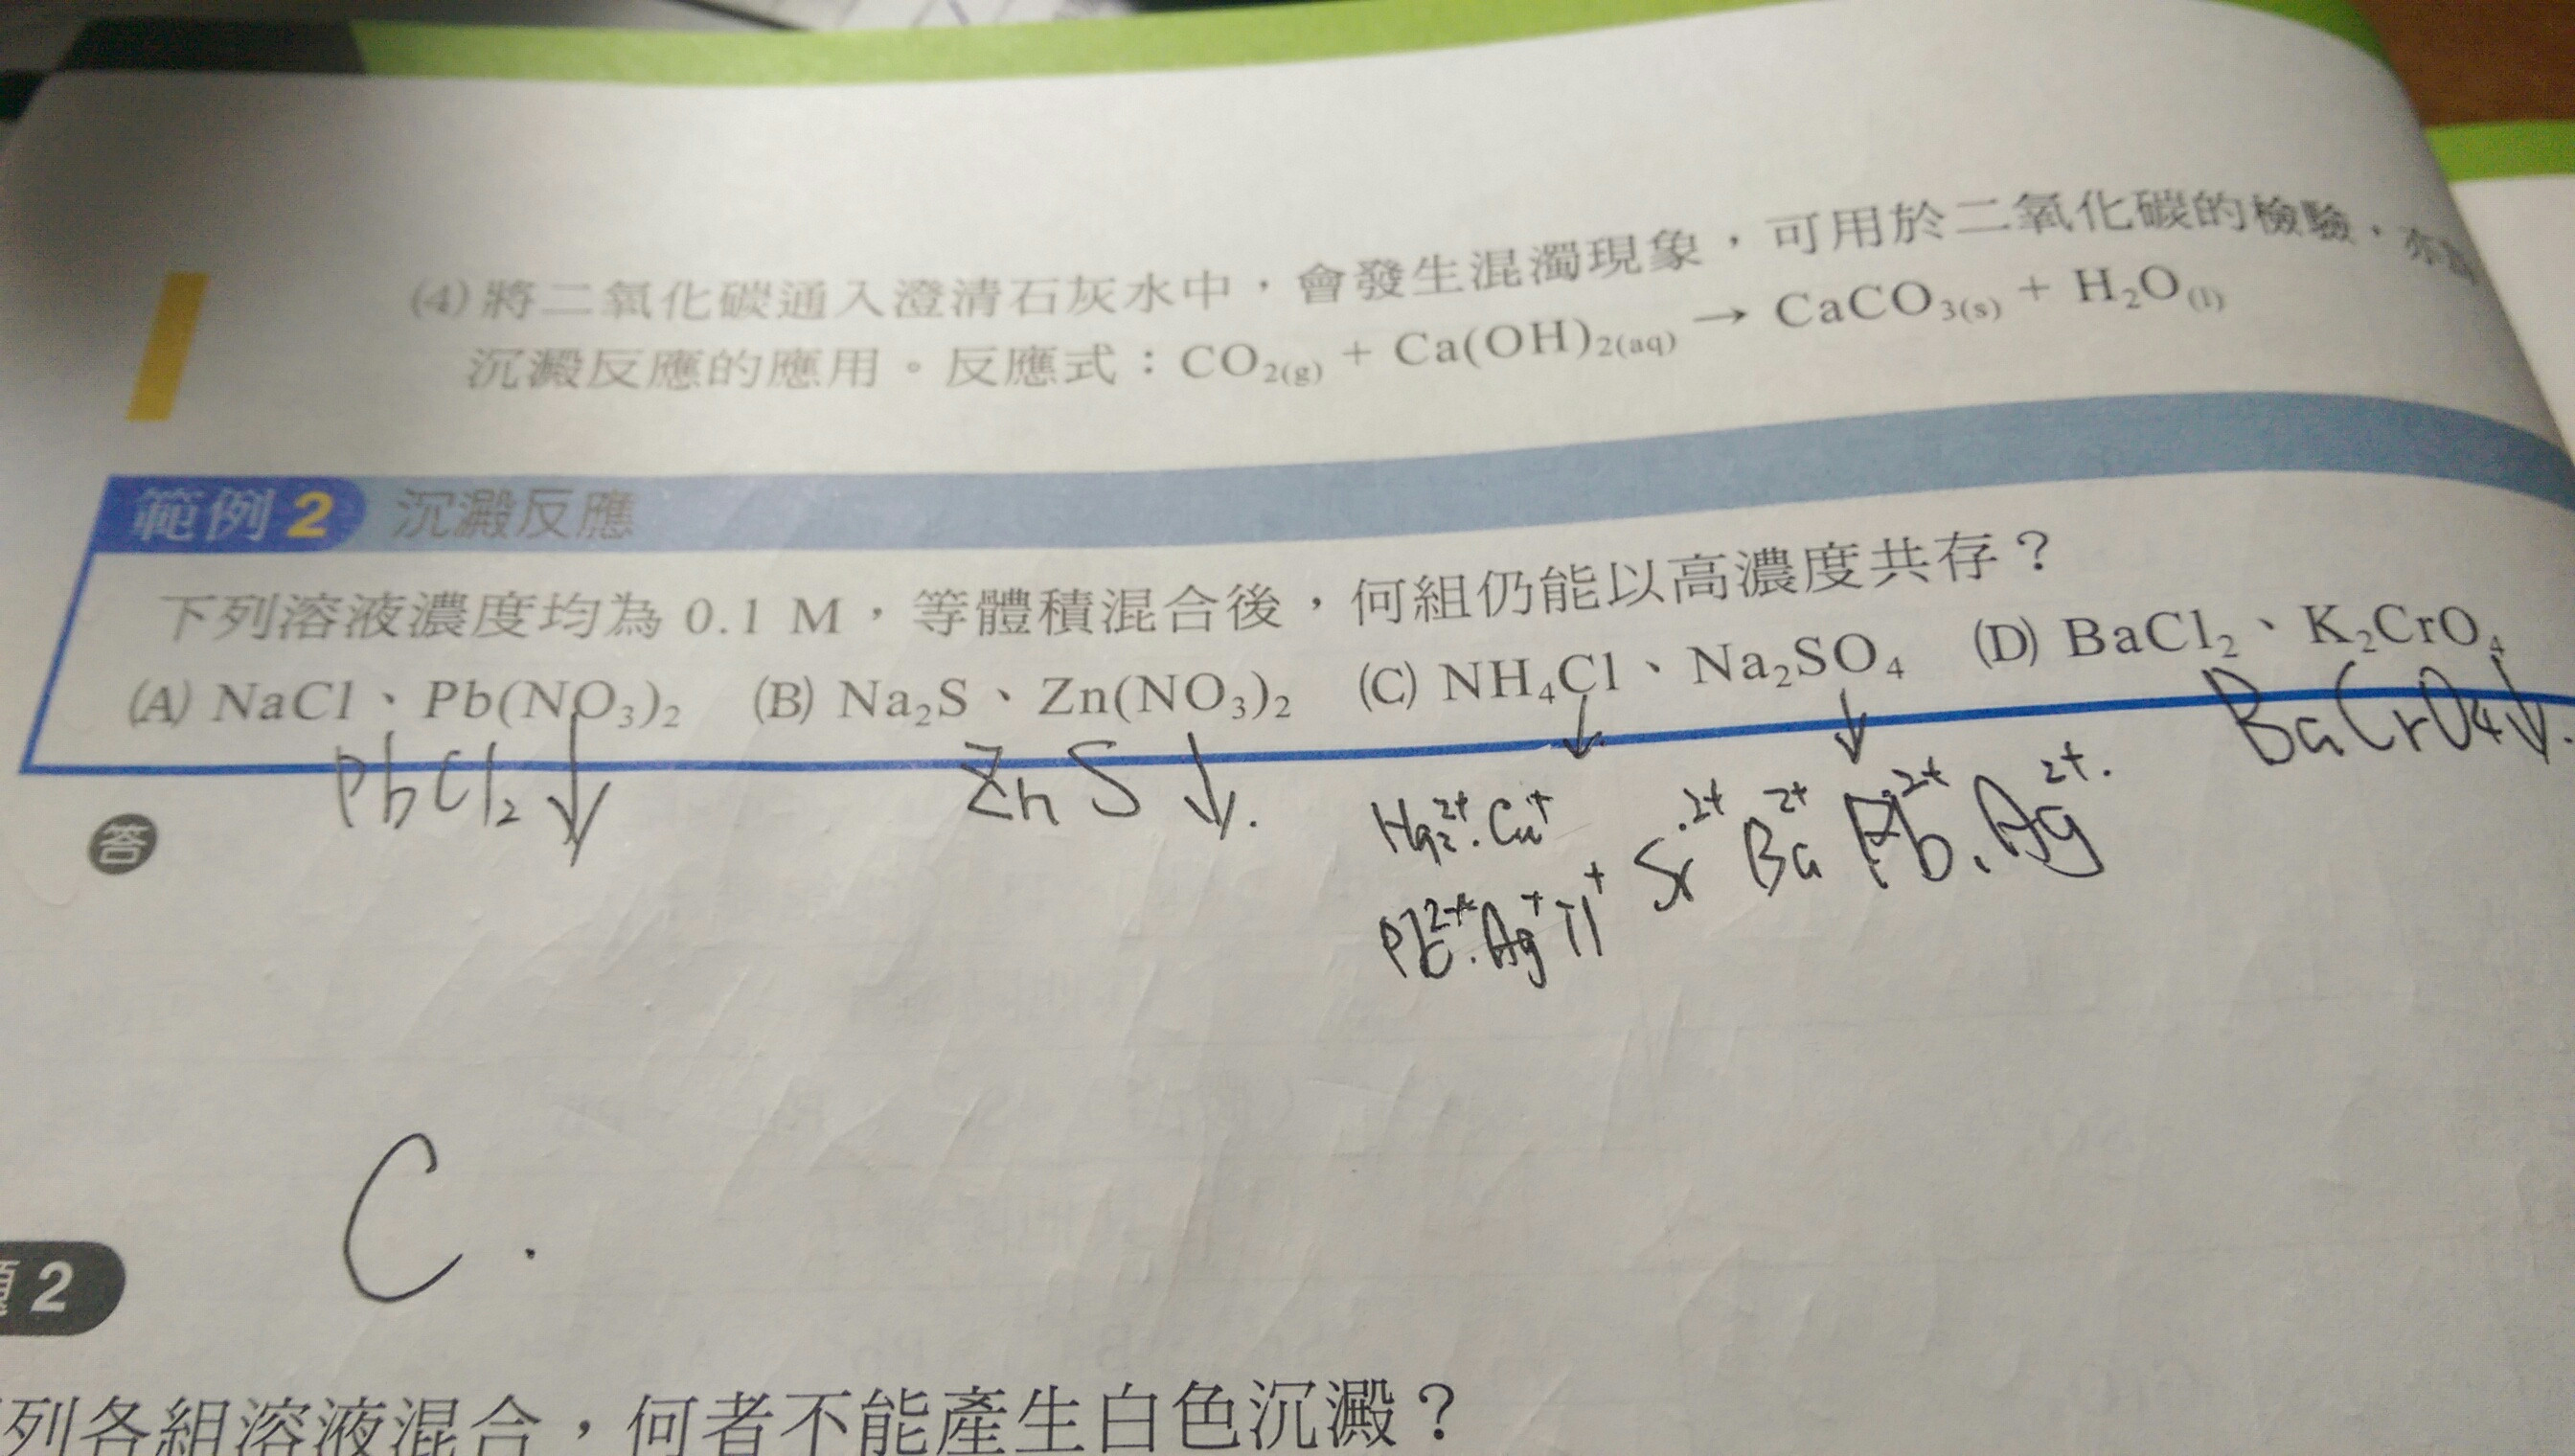 (4)將二氧化碳通入澄清石灰水中，會發生混濁現象，可用於二氧化碳的檢驗，亦為
沉澱反應的應用。反應式：CO₂(g) + Ca(OH)₂(aq) → CaCO₃(s) + H₂O(l)
範例2 沉澱反應
下列溶液濃度均為 0.1 M，等體積混合後，何組仍能以高濃度共存？
(A) NaCl、Pb(NO₃)₂ (B) Na₂S、Zn(NO₃)₂ (C) NH₄Cl、Na₂SO₄ (D) BaCl₂、K₂CrO₄
PbCl₂↓ ZnS↓. BaCrO₄↓.
答
Hg₂²⁺.Cu⁺ Sr²⁺ Ba²⁺ Pb²⁺.Ag²⁺.
Pb²⁺.Ag⁺Tl⁺
C.
題2
列各組溶液混合，何者不能產生白色沉澱？